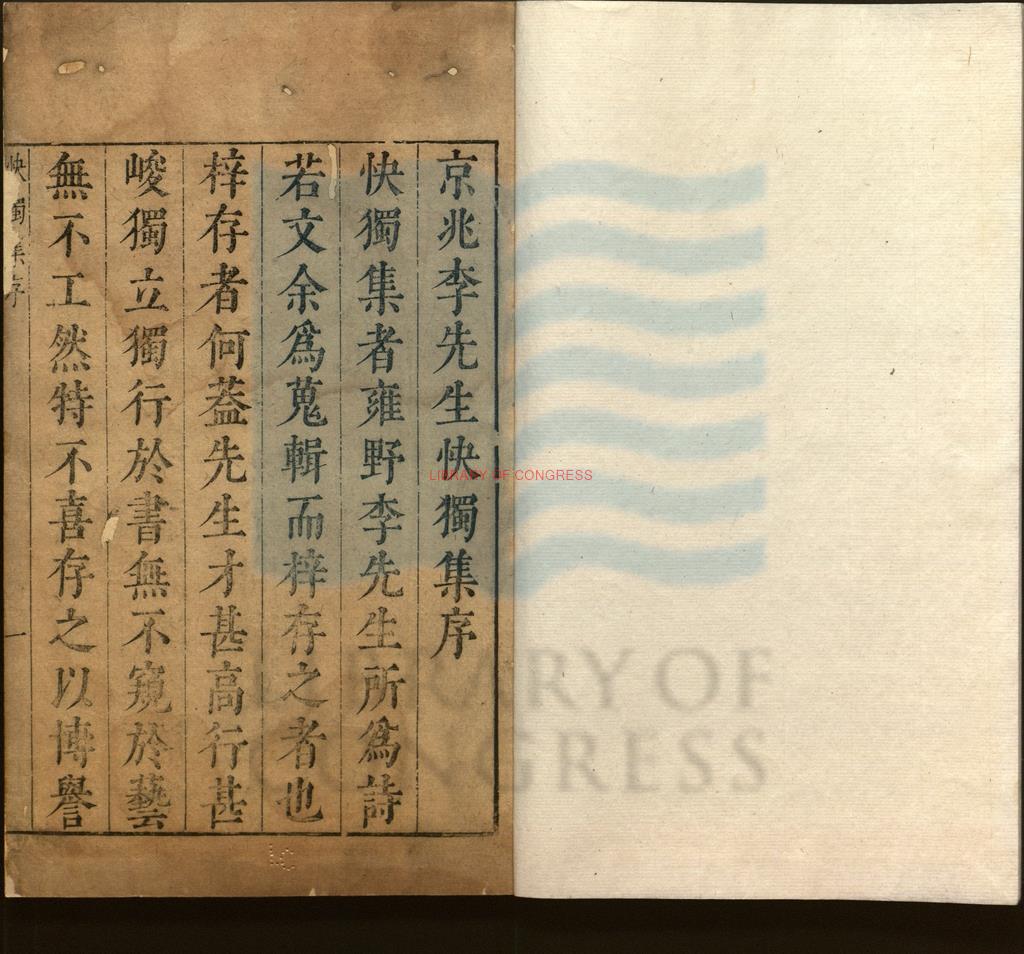 京兆李先生快獨集序
快獨集者雍野李先生所爲詩
若文余爲蒐輯而梓存之者也
梓存者何葢先生才甚高行甚
峻獨立獨行於書無不窺於藝
無不工然特不喜存之以博譽
快獨集序
一
LIBRARY OF CONGRESS
LIBRARY OF
CONGRESS